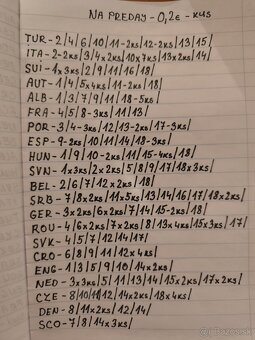 NA PREDAJ - 0,2€ - KUS
TUR - 2/4/6/10/11-2ks/12-2ks/13/15/
ITA - 2-2ks/3/4x2ks/10x7ks/13x2ks/14/
SUI - 1x3ks/2/9/11/16/18/
AUT - 1/4/5x4ks/11-2ks/18/
ALB - 1/3/7/9/11/18-5ks
FRA - 4/5/8-3ks/11/13/
POR - 3-3ks/12/13-2ks/17-3ks/
ESP - 9-2ks/10/11/14/18-3ks/
HUN - 1/9/10-2ks/11/15-4ks/18/
SVN - 1x3ks/2x2ks/5/8/9/17/18x3ks/
BEL - 2/6/7/12x2ks/18/
SRB - 7/8x2ks/11x5ks/13/14/16/17/18x2ks/
GER - 3x2ks/6x2ks/7/14/15-2ks/18/
ROU - 4/6x2ks/7x2ks/8/13x4ks/15x3ks/17/
SVK - 4/5/7/12/14/17/
CRO - 6/8/9/11/12x4ks/
ENG - 1/3/5/9/10/14x2ks/
NED - 3x3ks/5/11/13/14/15x2ks/17x2ks/
CZE - 8/10/11/12/14x2ks/18x4ks/
DEN - 8/11x2ks/12/14/
SCO - 7/8/14x3ks/